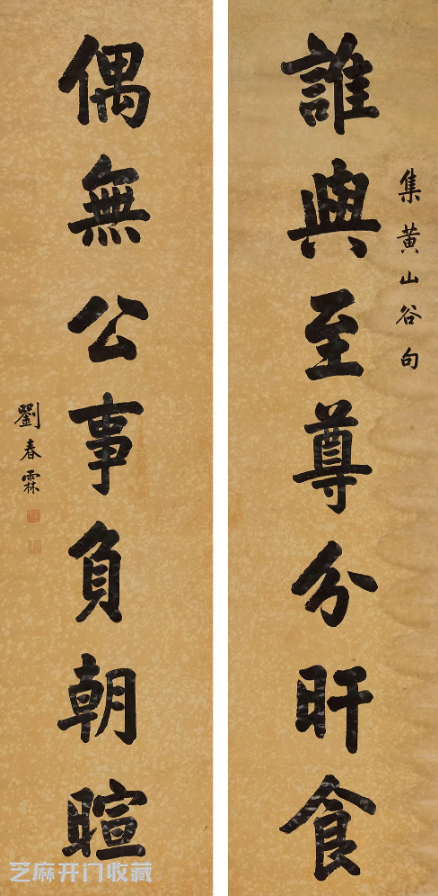 集黄山谷句
誰與至尊分旰食
偶無公事負朝暄
劉春霖
芝麻开门收藏